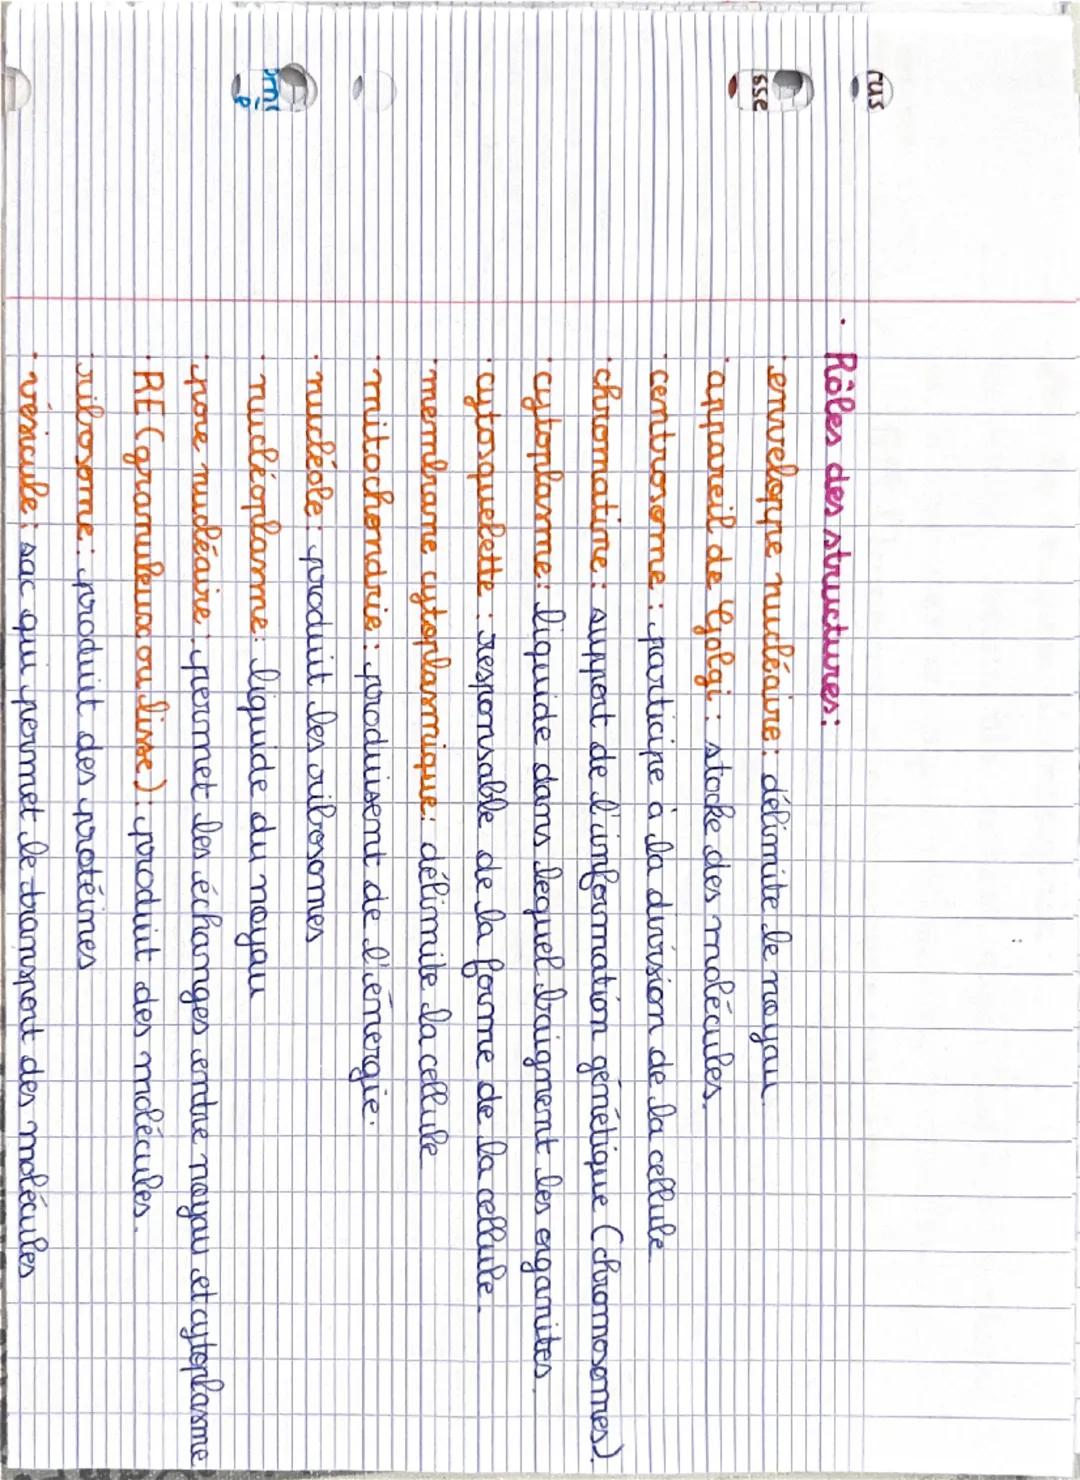 · Rôles des structures:
· enveloppe nucléaire: délimite le noyau.
· appareil de Golgi: stocke des molécules.
· centrosome: participe à la division de la cellule
· chromatine: support de l'information génétique (chromosomes).
· cytoplasme: liquide dans lequel baignent les organites.
· cytosquelette: responsable de la forme de la cellule.
· membrane cytoplasmique: délimite la cellule
· mitochondrie: produisent de l'énergie.
· nucléole: produit les ribosomes
· nucléoplasme: liquide du noyau
· pore nucléaire: permet les échanges entre noyau et cytoplasme
· RE (granuleux ou lisse): produit des molécules.
· ribosome: produit des protéines
· vésicule: sac qui permet le transport des molécules
rus
sse